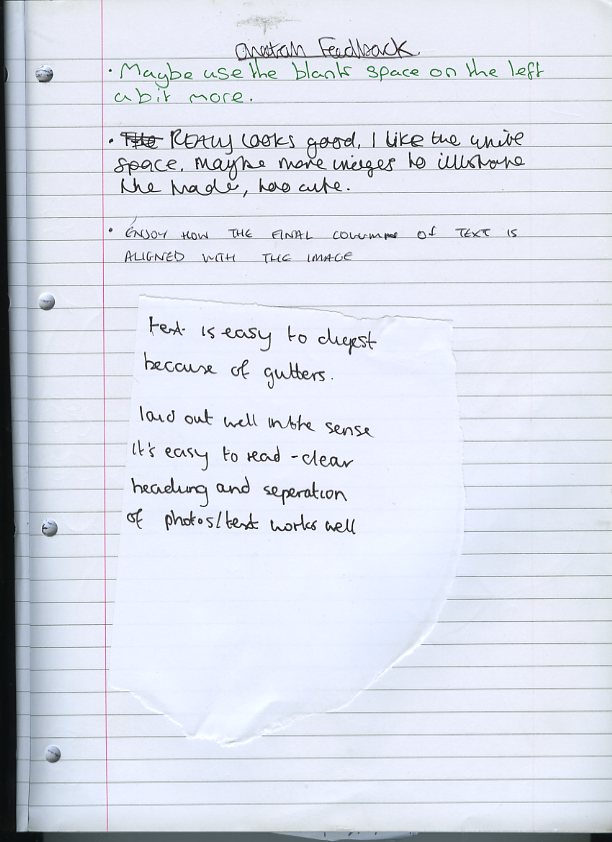 Feedback
· Maybe use the blank space on the left
a bit more.
· Really looks good, I like the white
space. Maybe more images to illustrate
the trade, too cute.
· ENJOY HOW THE FINAL COLUMN OF TEXT IS
ALIGNED WITH THE IMAGE
text is easy to digest
because of gutters.
laid out well in the sense
it's easy to read - clear
heading and seperation
of photos/text works well